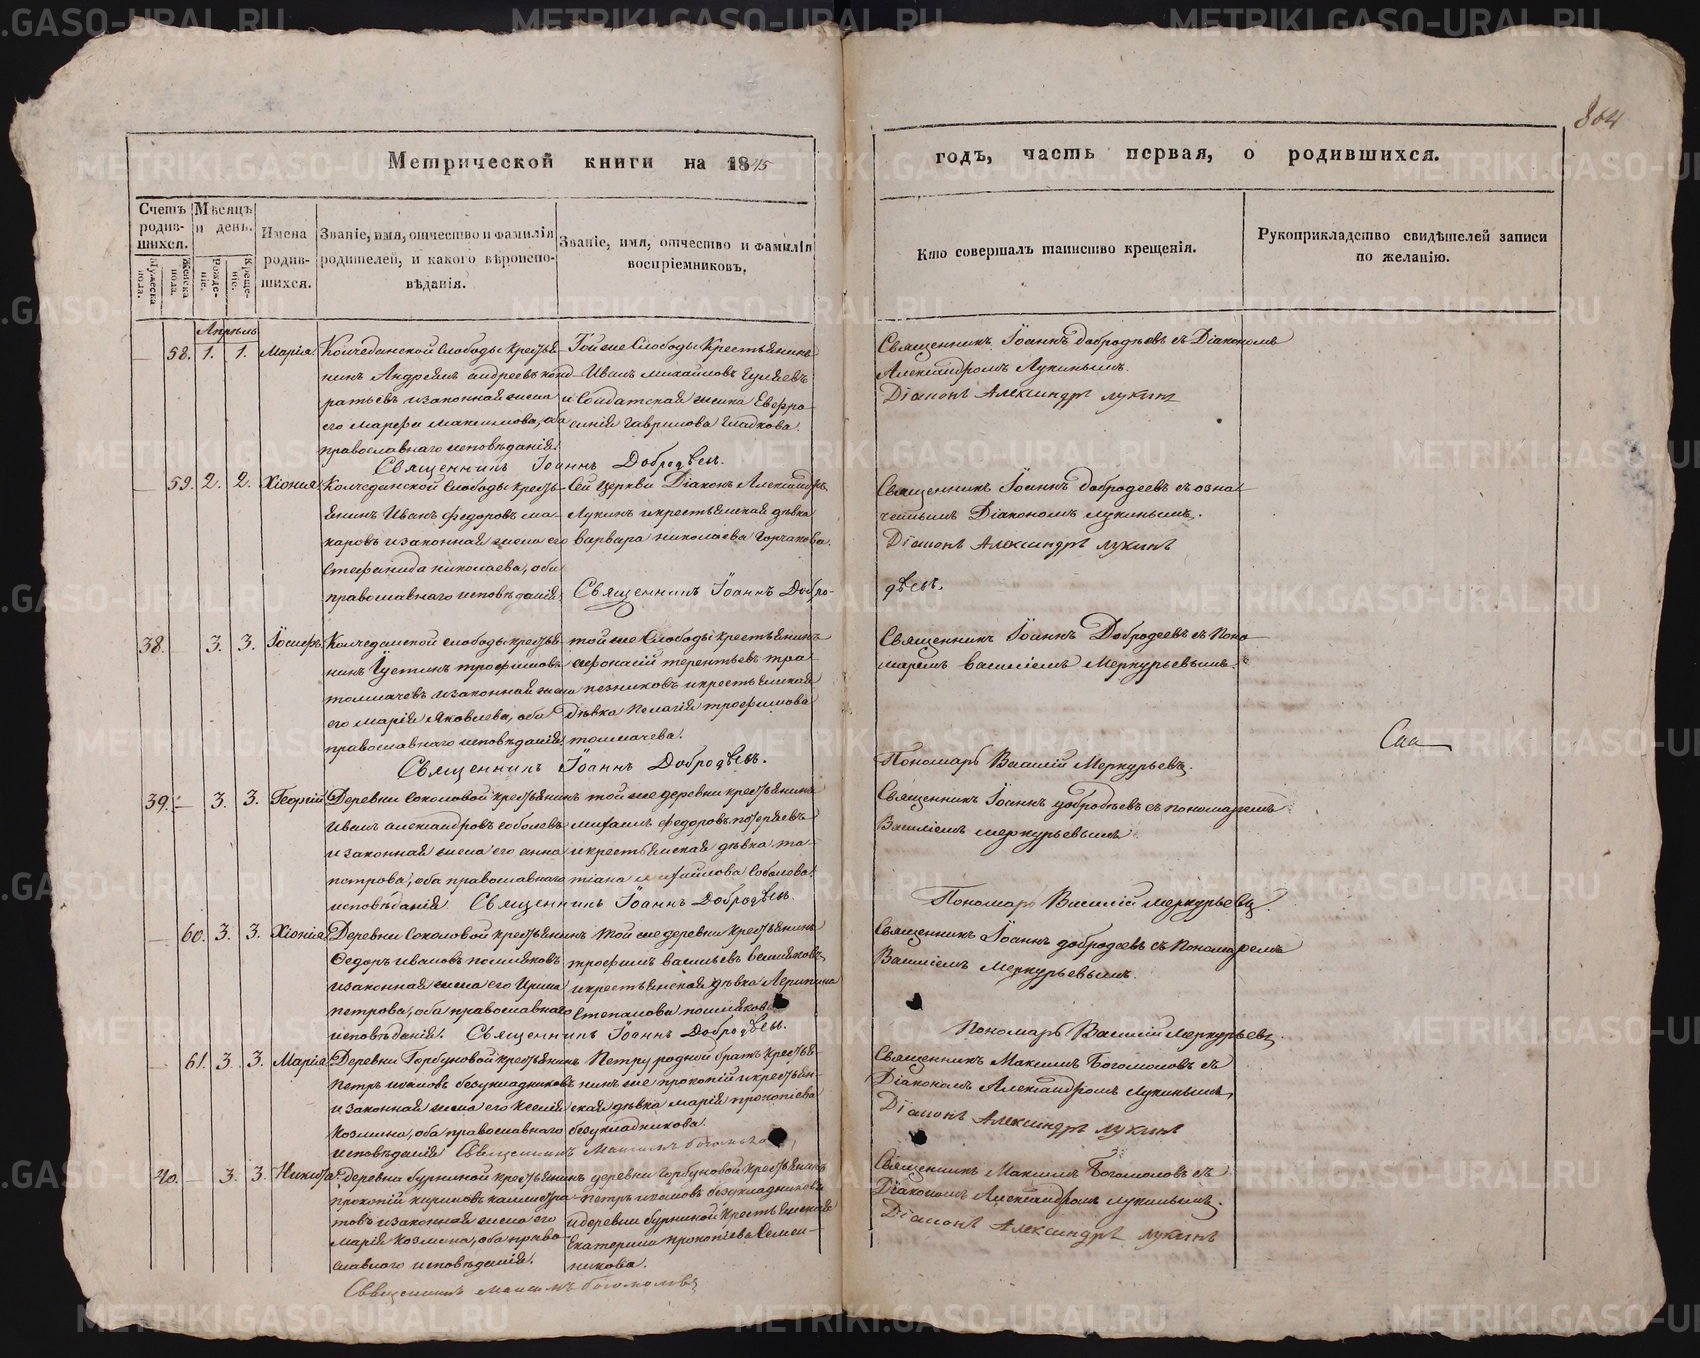 864
Метрической книги на 1845
годъ, часть первая, о родившихся.
Счетъ родив-шихся.
Мѣсяцъ и день.
Имена родив-шихся.
Званіе, имя, отчество и фамилія родителей, и какого вѣроиспо-вѣданія.
Званіе, имя, отчество и фамилія воспріемниковъ.
Кто совершалъ таинство крещенія.
Рукоприкладство свидѣтелей записи по желанію.
Мужеска пола.
Женска пола.
Рожде-ніе.
Креще-ніе.
Апрѣль
58. 1. 1. Марія
Колчеданской Слободы крестья-
нинъ Андреянъ андреевъ конд-
ратьевъ изаконная жена
его Марфа Максимова, оба
православнаго исповѣданія.
Той же Слободы Крестьянинъ
Иванъ михайловъ Гуляевъ
и Солдатская жена Евфро-
синія Гаврилова Гладкова.
Священникъ Іоаннъ Добродѣевъ.
Священникъ Іоаннъ добродѣевъ съ Діакономъ
Александромъ Лукинымъ.
Діаконъ Александръ Лукинъ
59. 2. 2. Хіонія
Колчеданской Слободы кресть-
янинъ Иванъ федоровъ ма-
каровъ изаконная жена его
Стефанида николаева, оба
православнаго исповѣданія.
Сей Церкви Діаконъ Александръ
Лукинъ икрестьянская дѣвка
варвара николаева Горчакова.
Священникъ Іоаннъ Добро-
дѣевъ.
Священникъ Іоаннъ добродеевъ съ озна-
ченнымъ Діакономъ лукинымъ.
Діаконъ Александръ Лукинъ
38. 3. 3. Іосифъ
Колчеданской слободы крестья-
нинъ Іустинъ трофимовъ
толмачевъ изаконная жена
его марія Яковлева, оба
православнаго исповѣданія.
той же Слободы крестьянинъ
афонасій терентьевъ тра-
пезниковъ икрестьянская
дѣвка Пелагія трофимова
толмачева.
Священникъ Іоаннъ Добродѣевъ.
Священникъ Іоаннъ Добродеевъ съ Поно-
маремъ василіемъ Меркурьевымъ.
Пономарь Василій Меркурьевъ.
39. 3. 3. Георгій
Деревни Соколовой крестьянинъ
Иванъ александровъ соболевъ
изаконная жена его анна
петрова, оба православнаго
исповѣданія
той же деревни крестьянинъ
михаилъ федоровъ
икрестьянская дѣвка та-
тіана михайлова Соболева.
Священникъ Іоаннъ Добродѣевъ.
Священникъ Іоаннъ добродѣевъ съ пономаремъ
Василіемъ меркурьевымъ
Пономарь Василій меркурьевъ.
60. 3. 3. Хіонія
Деревни Соколовой крестьянинъ
Федоръ ивановъ
изаконная жена его Ирина
петрова, оба православнаго
исповѣданія.
той же деревни крестьянинъ
трофимъ васильевъ
икрестьянская дѣвка
Степанова
Священникъ Іоаннъ Добродѣевъ.
Священникъ Іоаннъ добродеевъ съ Пономаремъ
Василіемъ Меркурьевымъ.
Пономарь Василій Меркурьевъ.
61. 3. 3. Марія
Деревни Горбуновой крестьянинъ
Петръ ивановъ безукладниковъ
изаконная жена его Ксенія
Козмина, оба православнаго
исповѣданія
Петру родной братъ крестья-
нинъ же прокопій икрестьян-
ская дѣвка марія прокопіева
безукладникова.
Священникъ Максимъ Богомоловъ
Священникъ Максимъ Богомоловъ съ
Діакономъ Александромъ Лукинымъ,
Діаконъ Александръ Лукинъ
40. 3. 3. Никита
Деревни бурниной крестьянинъ
прокопій кириловъ
изаконная жена его
марія Козмина, оба право-
славнаго исповѣданія.
деревни Горбуновой крестьянинъ
петръ ивановъ безукладниковъ
идеревни бурниной крестьянская
Екатерина прокопіева Семен-
никова.
Священникъ максимъ богомоловъ
Священникъ Максимъ Богомоловъ съ
Діакономъ Александромъ лукинымъ.
Діаконъ Александръ Лукинъ
METRIKI.GASO-URAL.RU